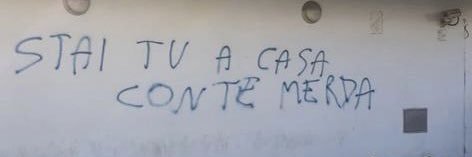 STAI TU A CASA
CONTE MERDA